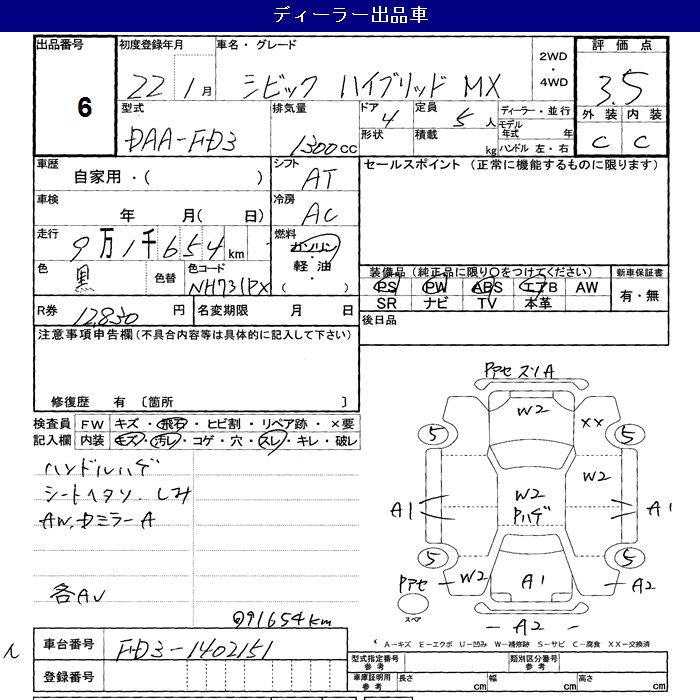 ディーラー出品車
出品番号
6
初度登録年月
22 1月
車名・グレード
シビック ハイブリッド MX
2WD
・
4WD
評価点
3.5
外装 内装
C C
型式
DAA-FD3
排気量
1300cc
ドア
4
形状
定員
5人
積載
kg
ディーラー・並行
モデル年式 年
ハンドル 左・右
車歴
自家用・( )
車検
年 月( 日)
走行
9万1千654km
色
黒
色替
色コード
NH731PX
シフト
AT
冷房
AC
燃料
ガソリン
軽油
( )
セールスポイント (正常に機能するものに限ります)
装備品(純正品に限り○をつけてください)
PS PW ABS エアB AW
SR ナビ TV 本革
新車保証書
有・無
R券
12,830円
名変期限 月 日
後日品
注意事項申告欄(不具合内容等は具体的に記入して下さい)
修復歴 有 〔箇所 〕
検査員記入欄
FW キズ・飛石・ヒビ割・リペア跡・×要
内装 キズ・汚レ・コゲ・穴・スレ・キレ・破レ
ハンドルハゲ
シートヘタリ、しみ
AW、Dミラー A
各AU
91654km
PアセスリA
W2
XX
5
5
W2
W2
Pハゲ
A1
A1
5
5
Pアセ
W2
A1
A2
スペア
- A2 -
A-キズ E-エクボ U-凹み W-補修跡 S-サビ C-腐食 XX-交換済
車台番号
FD3-1402151
登録番号
型式指定番号
参考
類別区分番号
参考
車庫証明用
参考
長さ cm
幅 cm
高さ cm